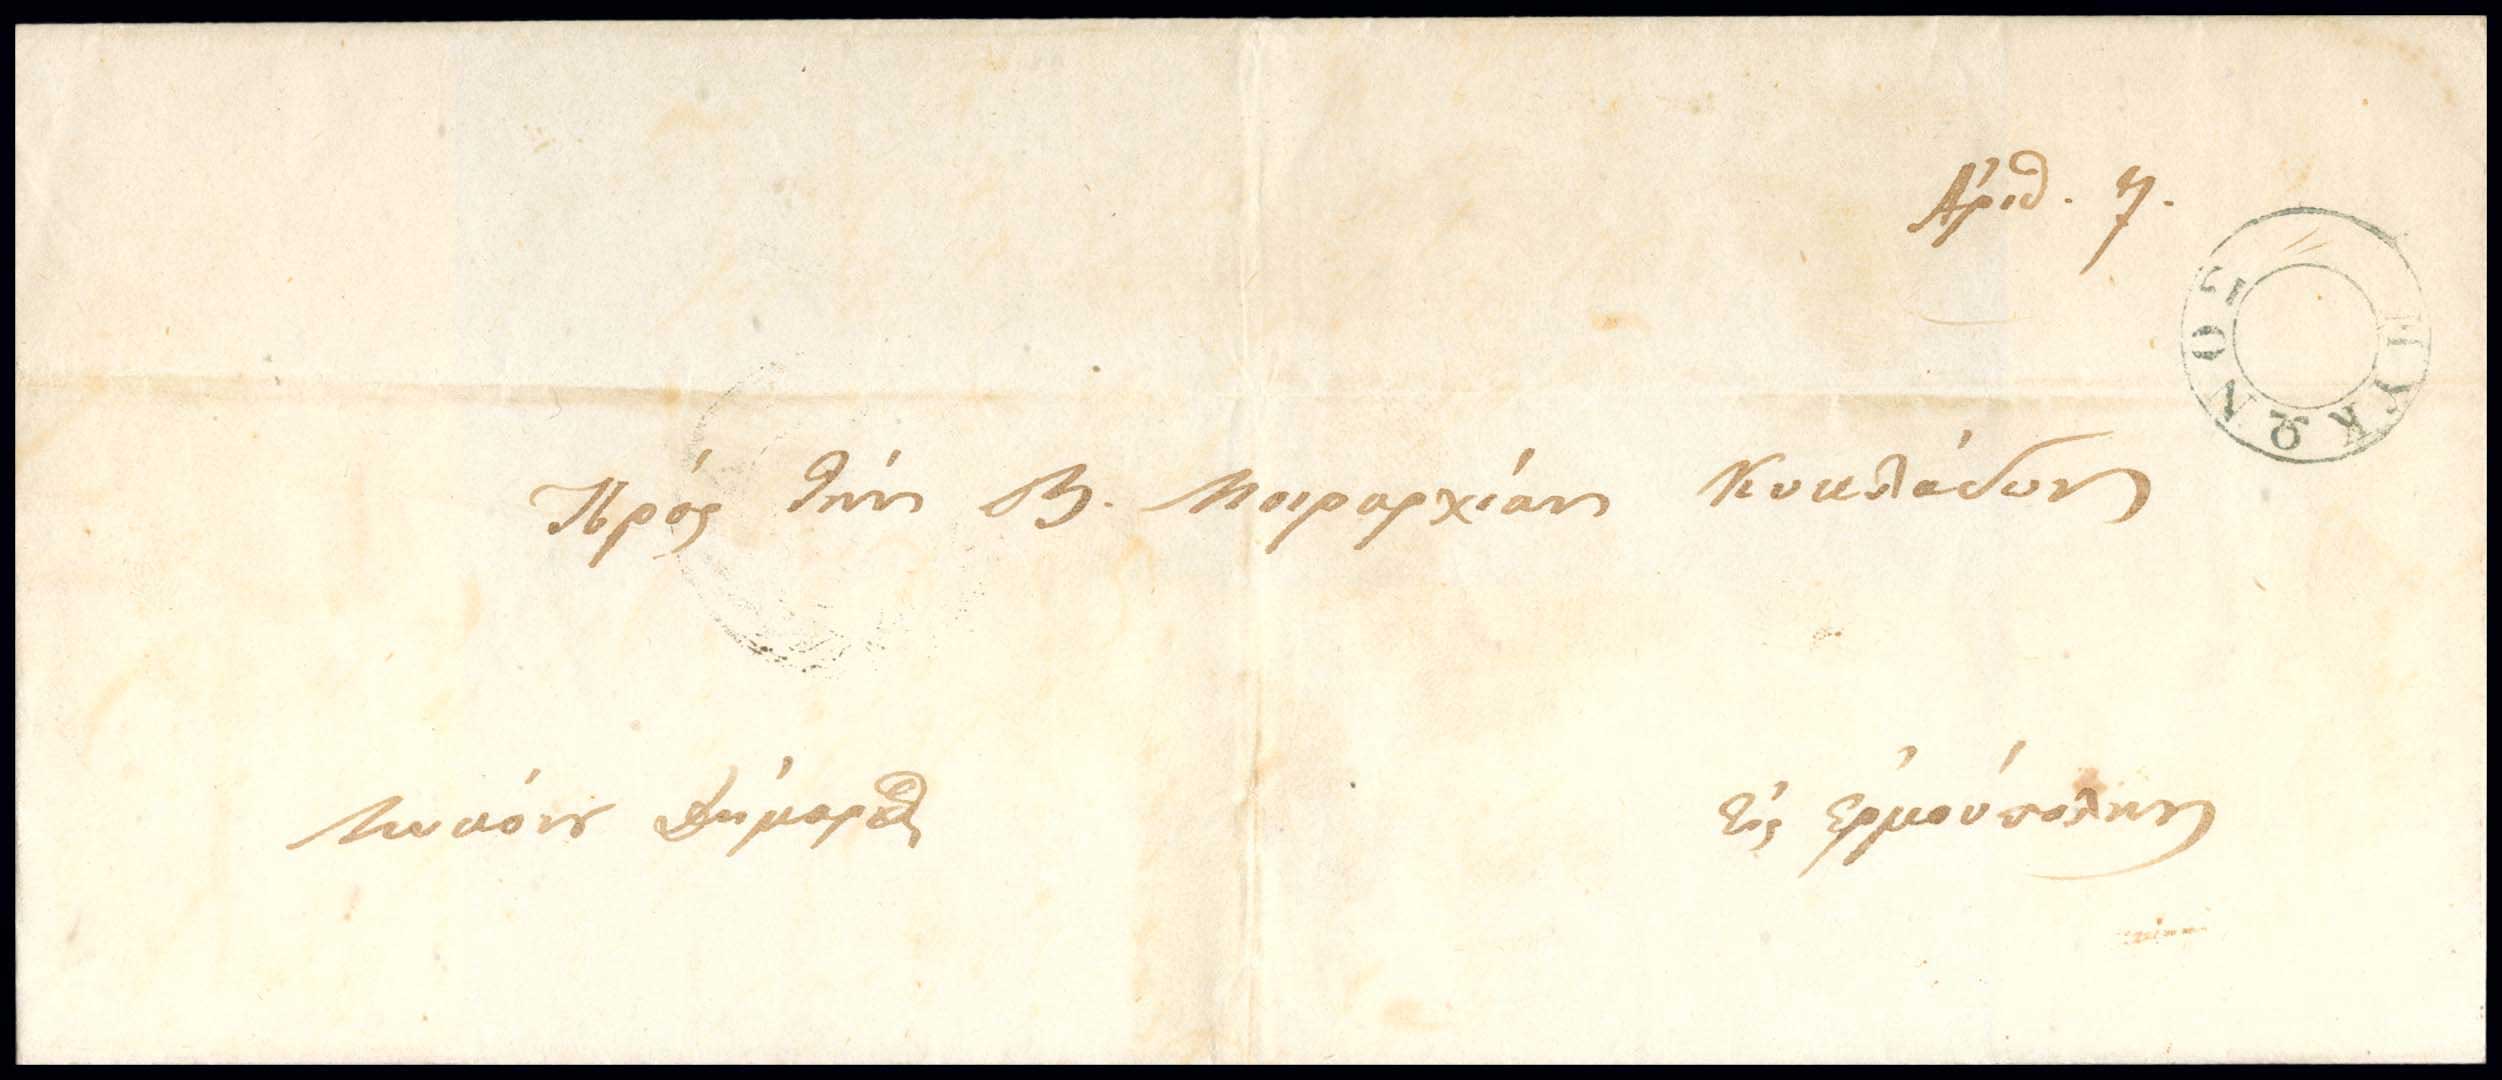 Ἀριθ. 7.
ΜΥΚΩΝΟΣ
Πρὸς τὴν Β. Μοιραρχίαν Κυκλάδων
Δήμαρχ
Εἰς Ἑρμούπολιν